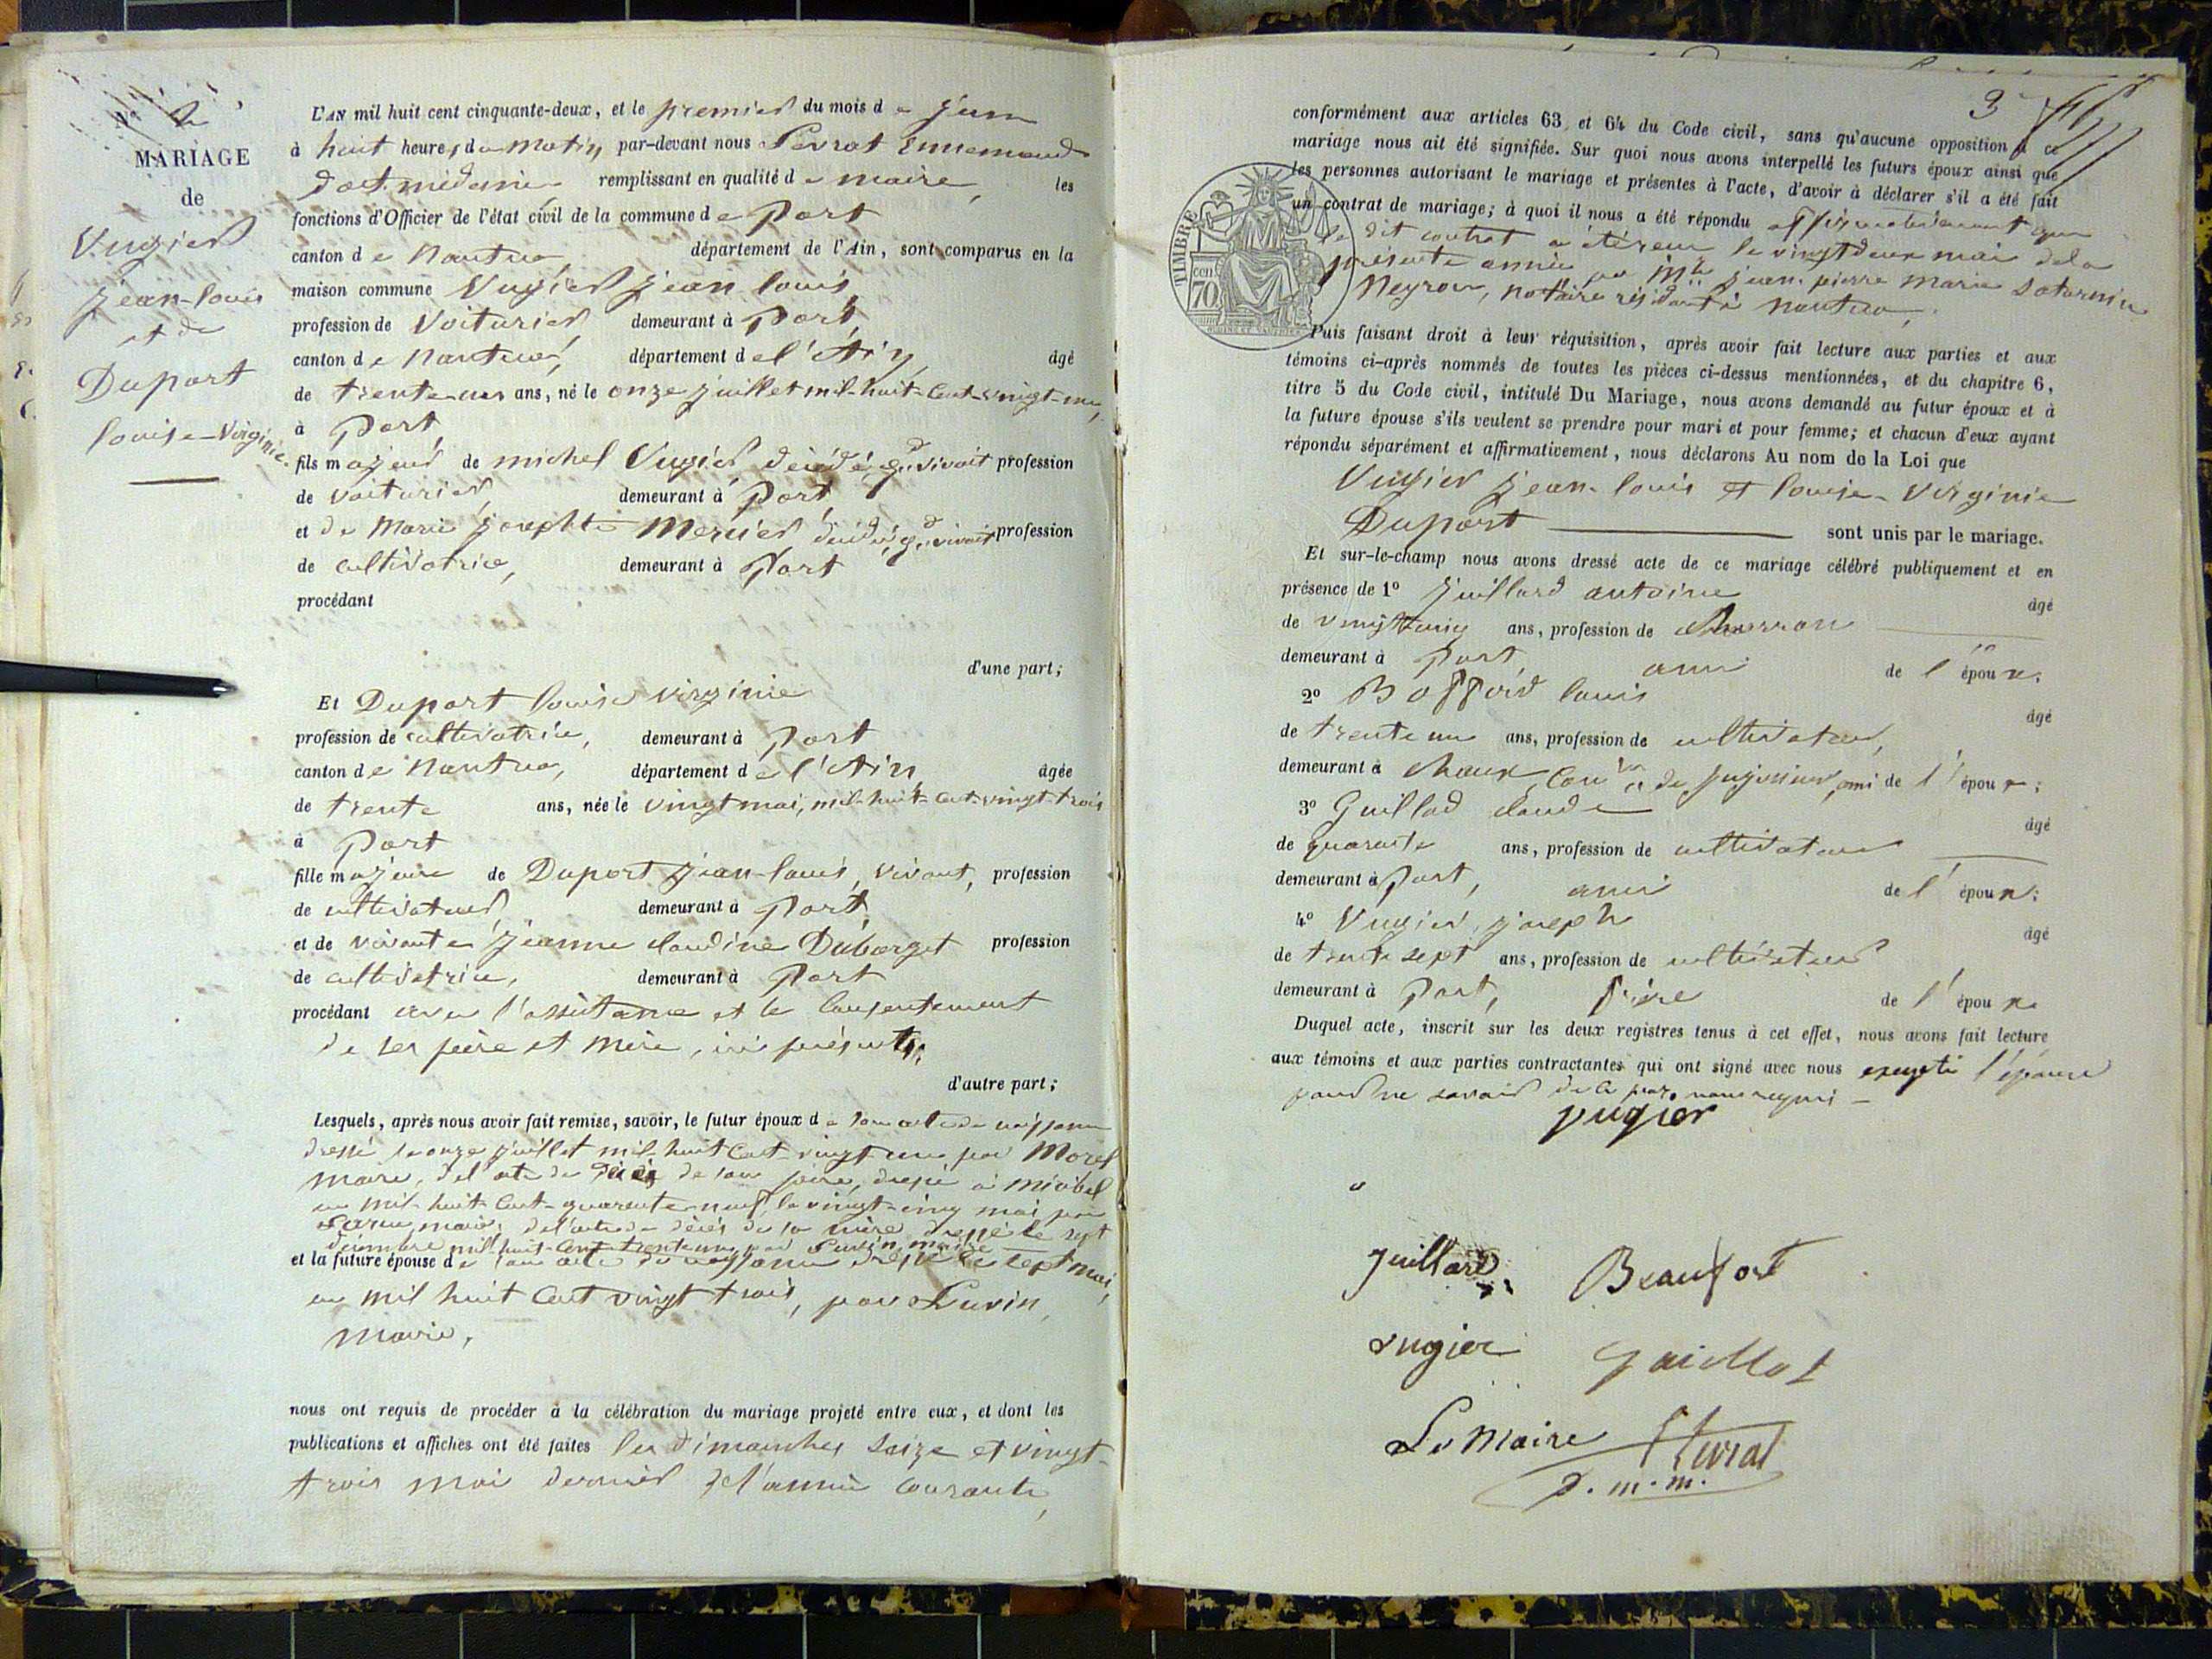 N° 2
MARIAGE
de
Vugier
jean-louis
et de
Duport
louise-Virginie.
L'AN mil huit cent cinquante-deux, et le premier du mois de juin
à huit heures du matin par-devant nous Pevrat Ennemond
doct. médecin remplissant en qualité de maire, les
fonctions d'Officier de l'état civil de la commune de Port
canton de Nantua, département de l'Ain, sont comparus en la
maison commune Vugier jean louis
profession de Voiturier demeurant à Port,
canton de Nantua, département de l'Ain, âgé
de trente-un ans, né le onze juillet mil-huit-cent-vingt-un,
à Port
fils majeur de michel Vugier décédé, qd. vivait profession
de voiturier, demeurant à Port,
et de Marie josephte Mercier décédé, qd. vivait profession
de cultivatrice, demeurant à Port
procédant
d'une part;
Et Duport louise virginie
profession de cultivatrice, demeurant à Port
canton de Nantua, département de l'Ain, âgée
de trente ans, née le vingt mai, mil-huit-cent-vingt-trois
à Port
fille majeure de Duport jean-louis, vivant, profession
de cultivateur, demeurant à Port,
et de vivante jeanne claudine Duborget profession
de cultivatrice, demeurant à Port
procédant avec l'assistance et le consentement
de ses père et mère, ici présents,
d'autre part;
Lesquels, après nous avoir fait remise, savoir, le futur époux de son acte de naissance
dressé le onze juillet mil-huit cent-vingt-un par Morel
maire, del acte de décès de son père, dressé à miribel
en mil-huit-cent-quarante-neuf, le vingt-cinq mai par
maire, de l'acte de décès de sa mère dressé le sept
décembre mil huit-cent-trente-un, par Luvin, maire
et la future épouse de son acte de naissance dressé le sept mai,
en mil huit cent vingt trois, par Luvin,
maire,
nous ont requis de procéder à la célébration du mariage projeté entre eux, et dont les
publications et affiches ont été faites les dimanches seize et vingt-
trois mai dernier de l'année courante,
3
conformément aux articles 63 et 64 du Code civil, sans qu'aucune opposition à ce
mariage nous ait été signifiée. Sur quoi nous avons interpellé les futurs époux ainsi que
les personnes autorisant le mariage et présentes à l'acte, d'avoir à déclarer s'il a été fait
un contrat de mariage; à quoi il nous a été répondu affirmativement que
le dit contrat a été reçu le vingt deux mai de la
présente année par me jean-pierre marie Saturnin
Neyron, notaire résidant à Nantua,
TIMBRE
70 cen
Puis faisant droit à leur réquisition, après avoir fait lecture aux parties et aux
témoins ci-après nommés de toutes les pièces ci-dessus mentionnées, et du chapitre 6,
titre 5 du Code civil, intitulé Du Mariage, nous avons demandé au futur époux et à
la future épouse s'ils veulent se prendre pour mari et pour femme; et chacun d'eux ayant
répondu séparément et affirmativement, nous déclarons Au nom de la Loi que
Vugier jean-louis et louise-Virginie
Duport sont unis par le mariage.
Et sur-le-champ nous avons dressé acte de ce mariage célébré publiquement et en
présence de 1° juillard antoine âgé
de vingt cinq ans, profession de charron
demeurant à Port, ami de l'époux;
2° Bofford louis âgé
de trente un ans, profession de cultivateur,
demeurant à ami de l'époux;
3° Guillod claude âgé
de quarante ans, profession de cultivateur
demeurant à Port, ami de l'époux;
4° Vugier joseph âgé
de trente sept ans, profession de cultivateur
demeurant à Port, frère de l'époux
Duquel acte, inscrit sur les deux registres tenus à cet effet, nous avons fait lecture
aux témoins et aux parties contractantes qui ont signé avec nous excepté l'épouse
pour ne savoir de ce par nous requis
vugier
juillard Beaufort
vugier Guillot
Le Maire Pevrat
D. m. m.